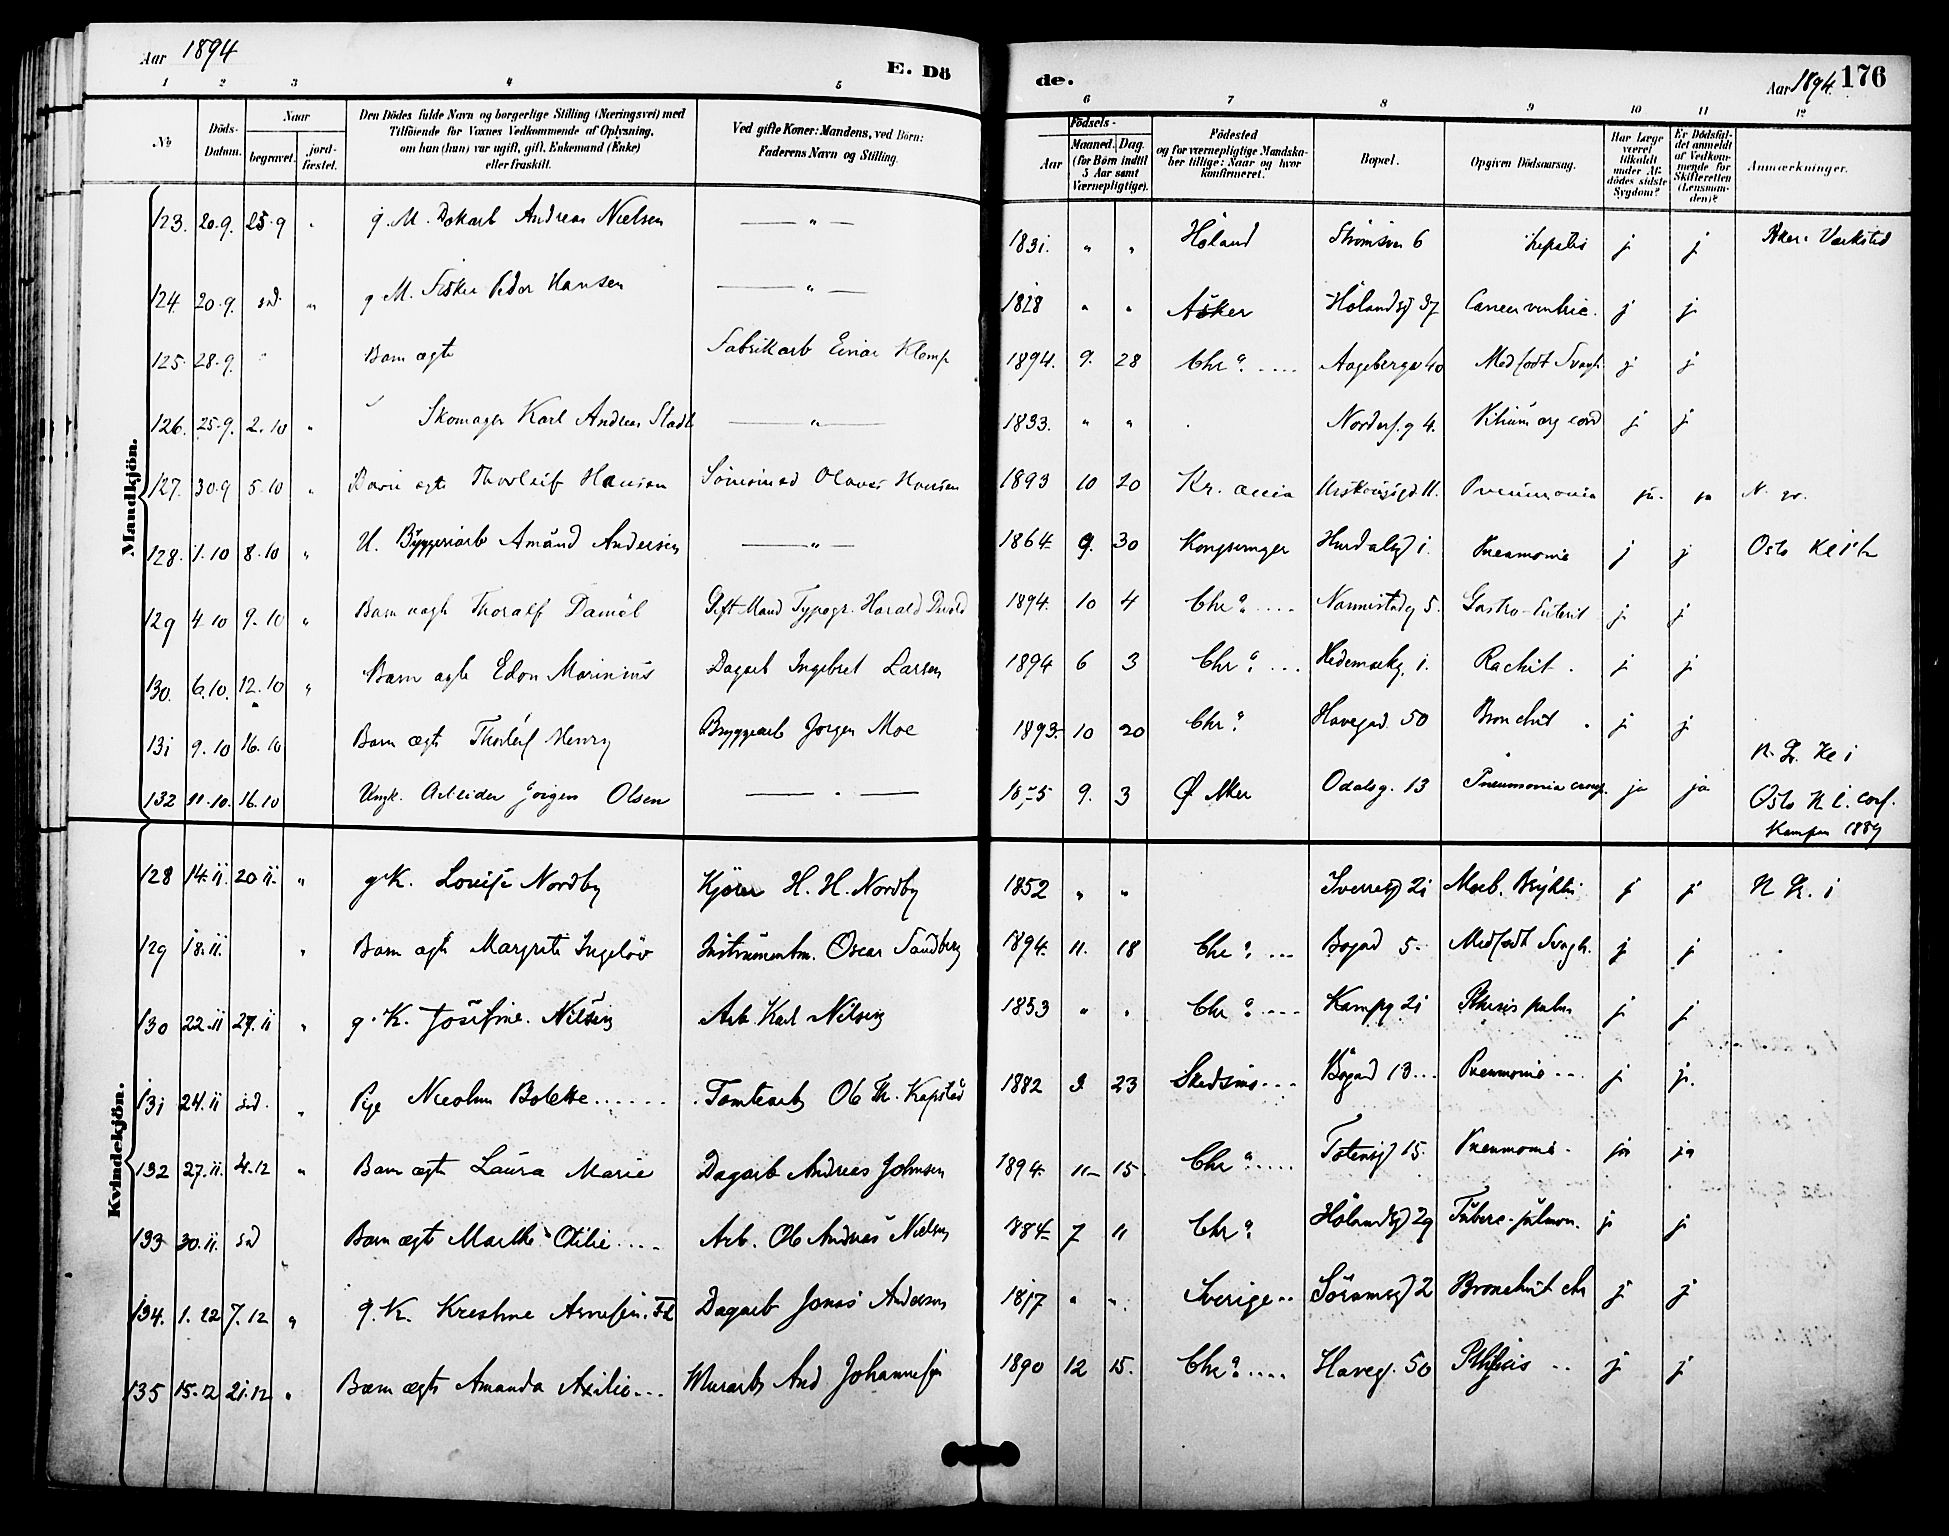 Aar 1894
E. Dö
de.
Aar 1894. 176
1 2 3 4 5 6 7 8 9 10 11 12
No
Döds-Datum.
Naar
begravet.
jord-fæstet.
Den Dödes fulde Navn og borgerlige Stilling (Næringsvei) med
Tilföiende for Voxnes Vedkommende af Oplysning,
om han (hun) var ugift, gift, Enkemand (Enke)
eller fraskilt.
Ved gifte Koner: Mandens, ved Börn:
Faderens Navn og Stilling.
Födsels-
Aar
Maaned. Dag.
(for Börn indtil
5 Aar samt
Værnepligtige).
Födested
og for værnepligtige Mandska-
ber tillige: Naar og hvor
konfirmeret.
Bopæl.
Opgiven Dödsaarsag.
Har Læge
været
tilkaldt
under Af-
dödes sidste
Sygdom?
Er Dödsfal-
det anmeldt
af Vedkom-
mende for
Skifteretten
(Lensman-
den)?
Anmærkninger.
Mandkjön.
123. 20.9. 25.9 " g. M. Andreas Nielsen — " — 1831. " " Höland 6 j j
124. 20.9. " g M. Peder Hansen — " — 1828 " " Asker Hölandsg 37 Cancer ventric. j j
125. 28.9. Barn ægte Fabrikarb Einar Klemp 1894. 9. 28 Chr.a Aagebergv 40 Medfødt Svagh. j j
126. 25.9. 2.10 " Skomager Karl Andreas — " — 1833. " " 4. Vitium org cord j j
127. 30.9 5.10 " Barn ægte Thorleif Hansen Olaves Hansen 1893 10 20 Kr. ania 11. Pneumonia ja ja
128. 1.10 8.10 " U. Amund Andersen — " — 1864 9. 30 Kongsvinger Hurdalsg 1. Pneumonie j j Oslo
129 4.10 9.10 " Barn Thoralf Daniel Gift Mand Typogr. Harald 1894. 10 4 Chr.a Nannestadg 5. Gastro-Enterit j j
130. 6.10. 12.10 " Barn ægte Edon Marinius Dagarb Ingebret Larsen 1894 6 3 Chr.a Hedemarkg. 1. Rachit. j j
131 9.10 16.10 Barn ægte Thorleif Henry Bryggearb Jørgen Moe 1893. 10 20 Chr.a Havegad. 50 Bronchit. j j
132 11.10. 16.10 Ungk. Arbeider Jørgen Olsen — " — 9. 3 Ø Aker Odalsg. 13 Pneumonia croup. ja ja Oslo
Kampen 1889
Kvindekjön.
128 14.11. 20 11. " g K. Lovise Nordby Kjører H. H. Nordby 1852 " " Sverresg 21 Morb. Brightii j j
129 18.11. " Barn ægte Margrete Ingeløv Instrumentm. Oscar Sandberg 1894. 11. 18 Chr.a Bogad 5. Medfødt Svagh. j j
130 22.11 27.11 " g. K. Josefine Nilsen Arb. Karl Nilsen 1853 " " Chr.a Kampg 21 Phtisis pulm j j
131 24.11 " Pige Nicoline Bolette Tomtearb Ole Th. Kapstad 1882 9 23 Skedsmo Bogad 13 Pneumonie j j.
132 27.11. 4.12 " Barn ægte Laura Marie Dagarb Andreas Johnsen 1894. 11 15. Chr.a Totensg 15. Pneumonie. ja ja
133 30.11. Barn ægte Marthe Otilie Arb. Ole Andreas Nielsen 1884 7 11 Chr.a Hölandsg 29 Tuberc. pulmon. j j
134. 1.12 7.12 " g. K. Kristine Arnesen. Dagarb Jonas Anderson 1817 " " Sverige Sörumsg 2 Bronchit chr j j
135 15.12 21.12 " Barn ægte Amanda Axilie Murarb And Johannesen 1890 12 15. Chr.a Haveg. 50 Phthisis j j